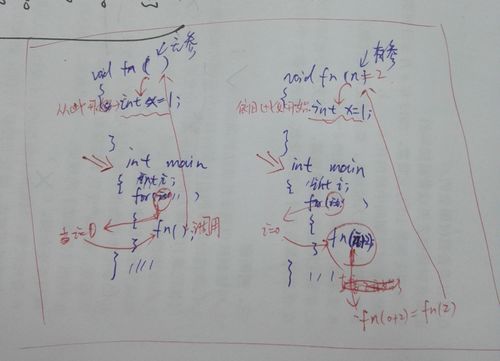 无参
void fn ( )
{
int x=1;
}
int main
{ int i;
for(i=0; ; )
{
当i=0
fn( );调用
}
}
有参
void fn (n)=2
{
int x=1;
}
int main
{ int i;
for(i=0; )
{
i=0
fn(i+2);
}
}
fn(0+2)=fn(2)